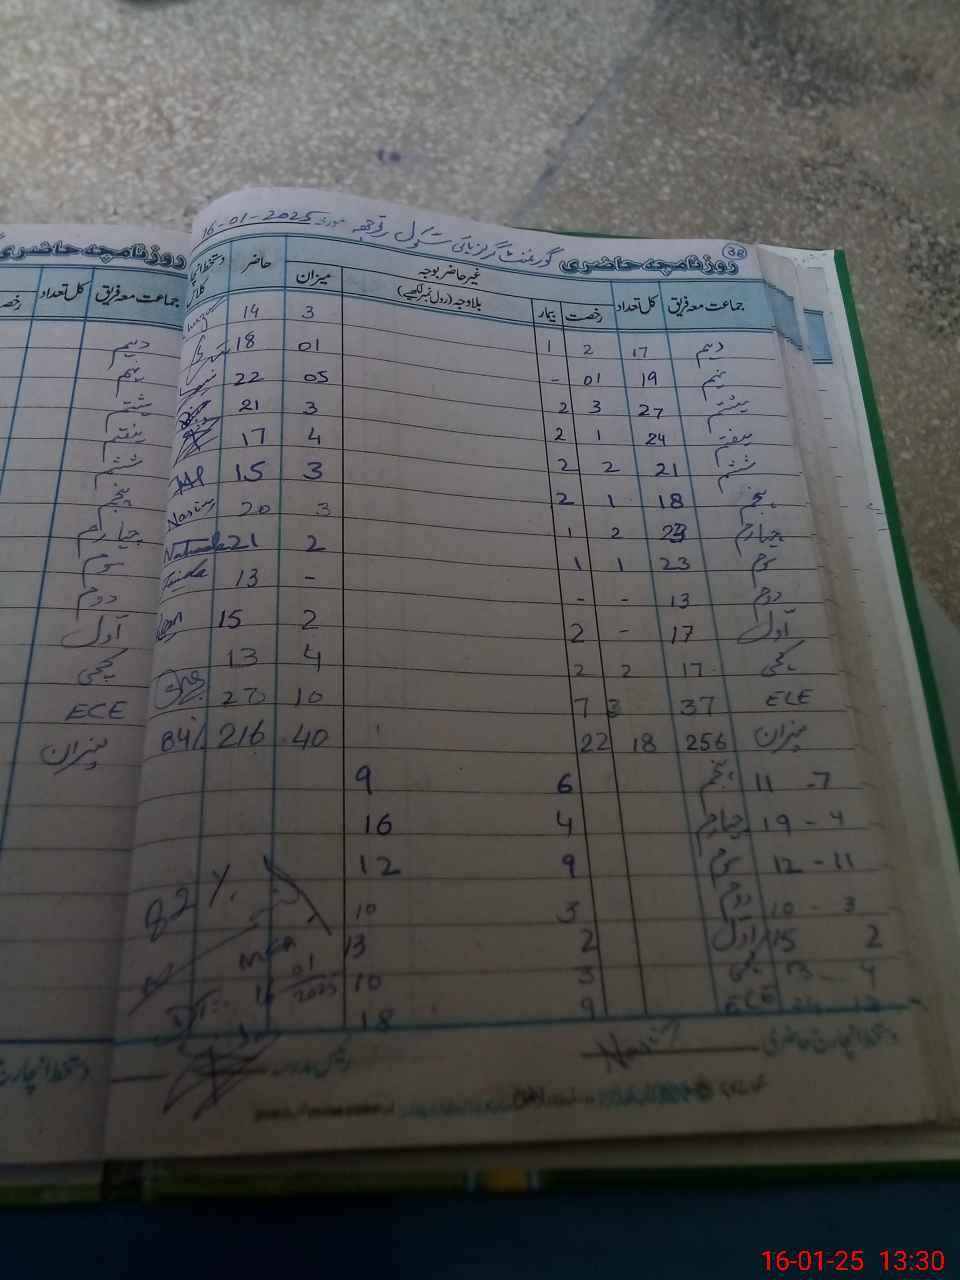 16-01-2025 مورخہ گورنمنٹ گرلز ہائی سکول
38
روزنامچہ حاضری
جماعت معہ فریق کل تعداد رخصت بیمار غیر حاضر بوجہ بلاوجہ (رول نمبر لکھیے) میزان حاضر
دہم 17 2 1 3 14
نہم 19 01 - 01 18
ہشتم 27 3 2 05 22
ہفتم 24 1 2 3 21
ششم 21 2 2 4 17
پنجم 18 1 2 3 15
چہارم 23 2 1 3 20
سوم 23 1 1 2 21
دوم 13 - - - 13
اول 17 - 2 2 15
کچی 17 2 2 4 13
ECE 37 3 7 10 27
میزان 256 18 22 40 216 84%
7- 11 پنجم 6 9
4 - 19 چہارم 4 16
11 - 12 سوم 9 12
3 - 10 دوم 3 10
2 15 اول 2 13
4 - 13 کچی 3 10
ECE 9 18
82 %
01
2025
دستخط انچارج حاضری
روزنامچہ حاضری
جماعت معہ فریق کل تعداد
دہم
نہم
ہشتم
ہفتم
ششم
پنجم
چہارم
سوم
دوم
اول
کچی
ECE
میزان
دستخط انچارج
16-01-25 13:30